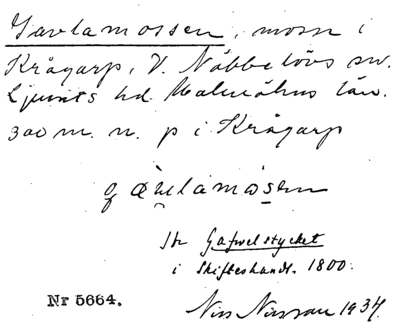 Gavlamossen, mosse i
Krågarp, V. Nöbbelövs sn.
Ljunits hd. Malmöhus län.
300 m. n. p i Krågarp
Jtr Gafvelstycket
i Skifteshandl. 1800.
Nr 5664.
Nils Nilsson 1934